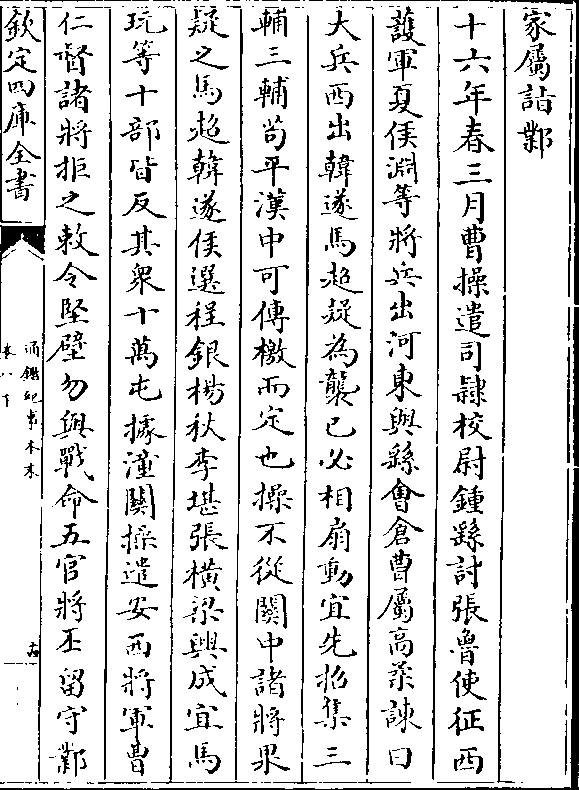 家屬詣鄴
十六年春三月曹操遣司隸校尉鍾繇討張魯使征西
護軍夏侯淵等將兵出河東與繇會倉曹屬高柔諫曰
大兵西出韓遂馬超疑為襲已必相扇動宜先招集三
輔三輔茍平漢中可傳檄而定也操不從關中諸將果
疑之馬超韓遂侯選程銀楊秋李堪張橫梁興成宜馬
玩等十部皆反其衆十萬屯據潼關操遣安西將軍曹
仁督諸將拒之敕令堅壁勿與戰命五官將丕留守鄴
欽定四庫全書
通鑑紀事本末
卷八下